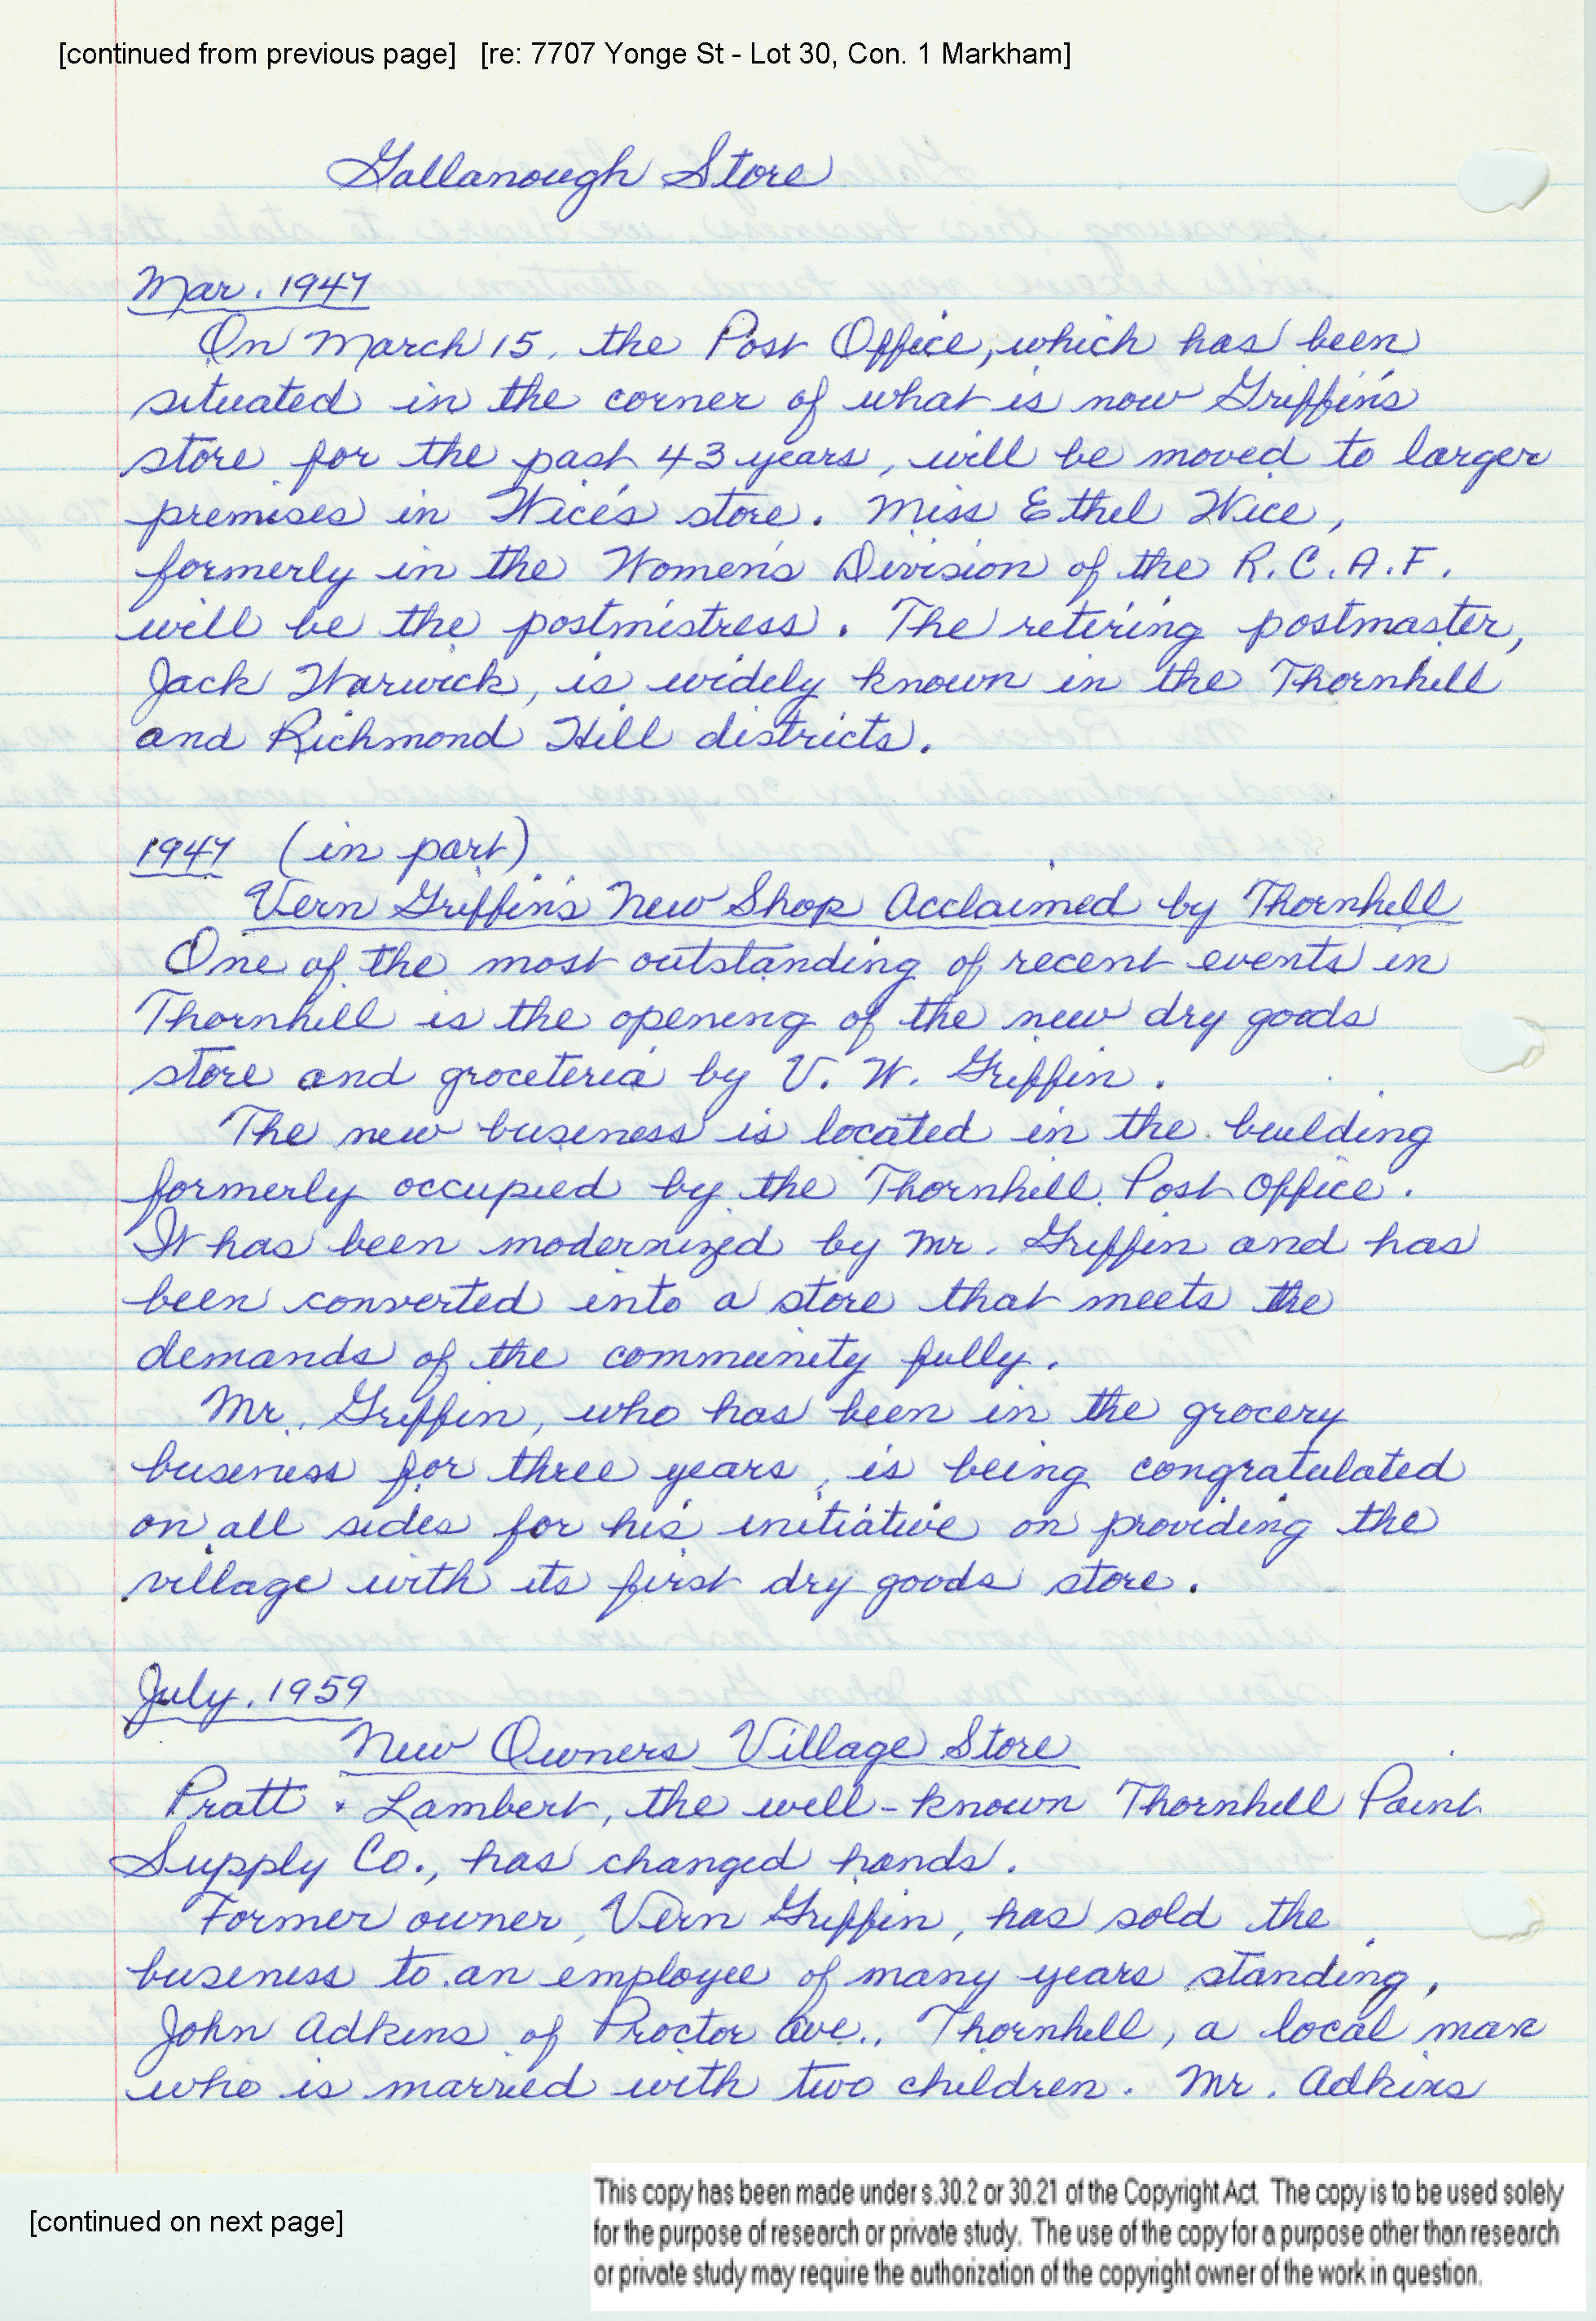 [continued from previous page] [re: 7707 Yonge St - Lot 30, Con. 1 Markham]
Gallanough Store
Mar. 1947
On March 15, the Post Office, which has been
situated in the corner of what is now Griffin's
store for the past 43 years, will be moved to larger
premises in Wice's store. Miss Ethel Wice,
formerly in the Women's Division of the R.C.A.F.
will be the postmistress. The retiring postmaster,
Jack Warwick, is widely known in the Thornhill
and Richmond Hill districts.
1947 (in part)
Vern Griffin's New Shop Acclaimed by Thornhill
One of the most outstanding of recent events in
Thornhill is the opening of the new dry goods
store and groceteria by V. W. Griffin.
The new business is located in the building
formerly occupied by the Thornhill Post Office.
It has been modernized by Mr. Griffin and has
been converted into a store that meets the
demands of the community fully.
Mr. Griffin, who has been in the grocery
business for three years, is being congratulated
on all sides for his initiative on providing the
village with its first dry goods store.
July, 1959
New Owners Village Store
Pratt & Lambert, the well-known Thornhill Paint
Supply Co., has changed hands.
Former owner, Vern Griffin, has sold the
business to an employee of many years standing,
John Adkins of Proctor Ave., Thornhill, a local man
who is married with two children. Mr. Adkins
[continued on next page]
This copy has been made under s.30.2 or 30.21 of the Copyright Act. The copy is to be used solely
for the purpose of research or private study. The use of the copy for a purpose other than research
or private study may require the authorization of the copyright owner of the work in question.